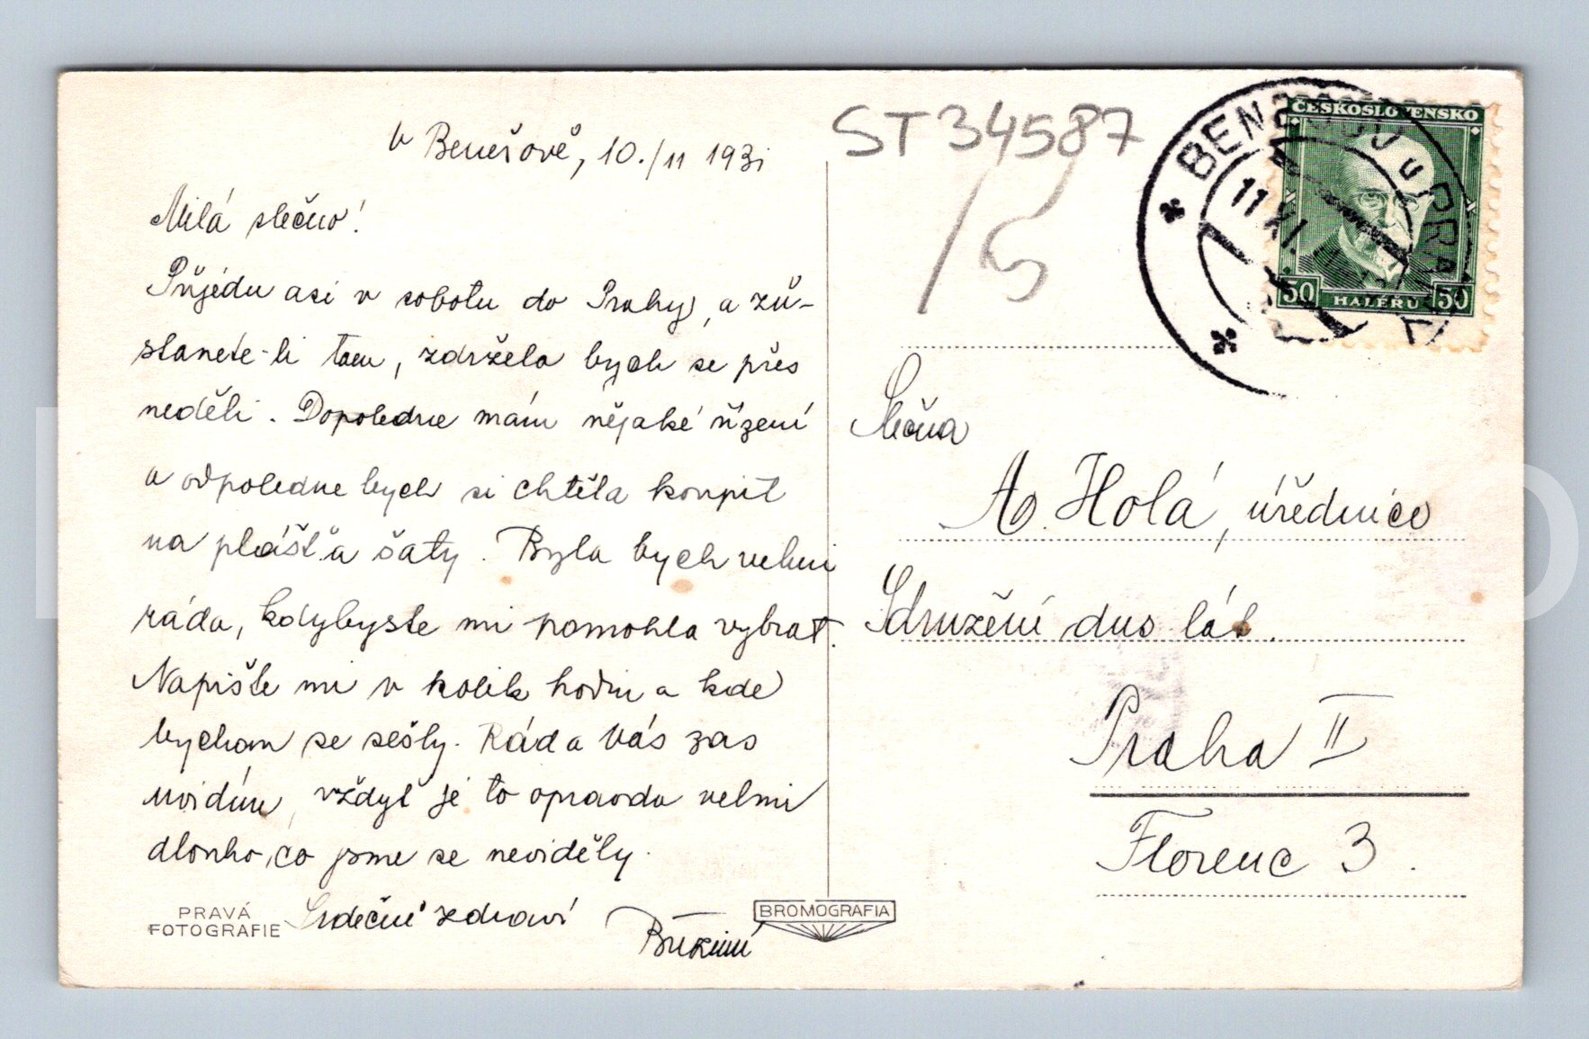 V Benešově, 10./11 1931
Milá slečno!
Přijedu asi v sobotu do Prahy, a zů-
stanete-li tam, zdržela bych se přes
neděli. Dopoledne mám nějaké řízení
a odpoledne bych si chtěla koupit
na plášť a šaty. Byla bych velmi
ráda, kdybyste mi pomohla vybrat.
Napište mi v kolik hodin a kde
bychom se sešly. Ráda Vás zas
uvidím, vždyť je to opravdu velmi
dlouho, co jsme se neviděly.
Srdečně zdraví
PRAVÁ
FOTOGRAFIE
BROMOGRAFIA
ST34587
15
BENEŠOV u PRAHY
11 XI
ČESKOSLOVENSKO
50 HALÉŘŮ 50
Slečna
A. Holá, úřednice
Sdružení dus lát.
Praha II
Florenc 3.